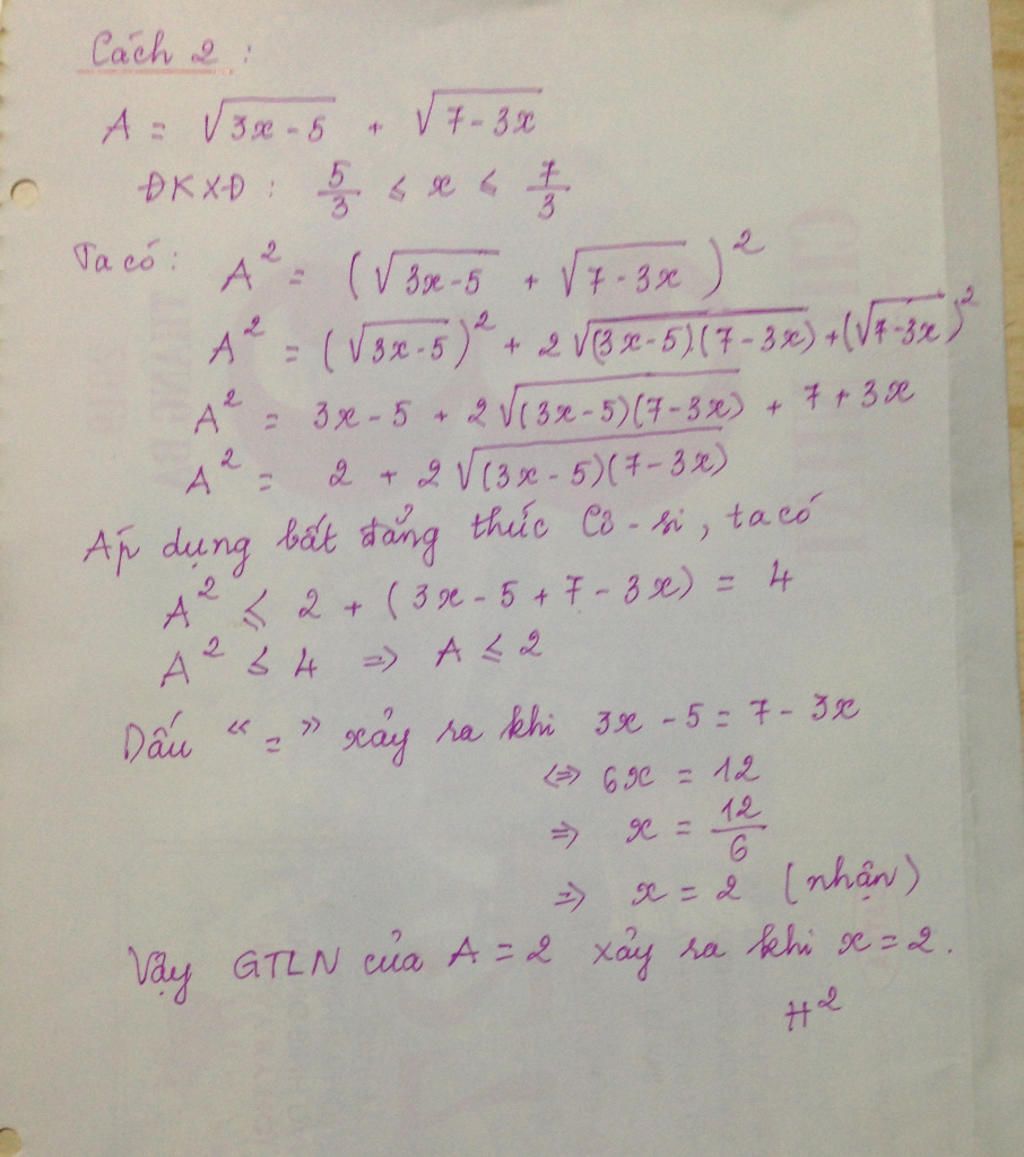 Cách 2 :
A = √(3x - 5) + √(7 - 3x)
ĐKXĐ : 5/3 ≤ x ≤ 7/3
Ta có : A² = (√(3x - 5) + √(7 - 3x))²
A² = (√(3x - 5))² + 2√((3x - 5)(7 - 3x)) + (√(7 - 3x))²
A² = 3x - 5 + 2√((3x - 5)(7 - 3x)) + 7 + 3x
A² = 2 + 2√((3x - 5)(7 - 3x))
Áp dụng bất đẳng thức Cô - si, ta có
A² ≤ 2 + (3x - 5 + 7 - 3x) = 4
A² ≤ 4 => A ≤ 2
Dấu “=” xảy ra khi 3x - 5 = 7 - 3x
<=> 6x = 12
=> x = 12/6
=> x = 2 (nhận)
Vậy GTLN của A = 2 xảy ra khi x = 2.
H²